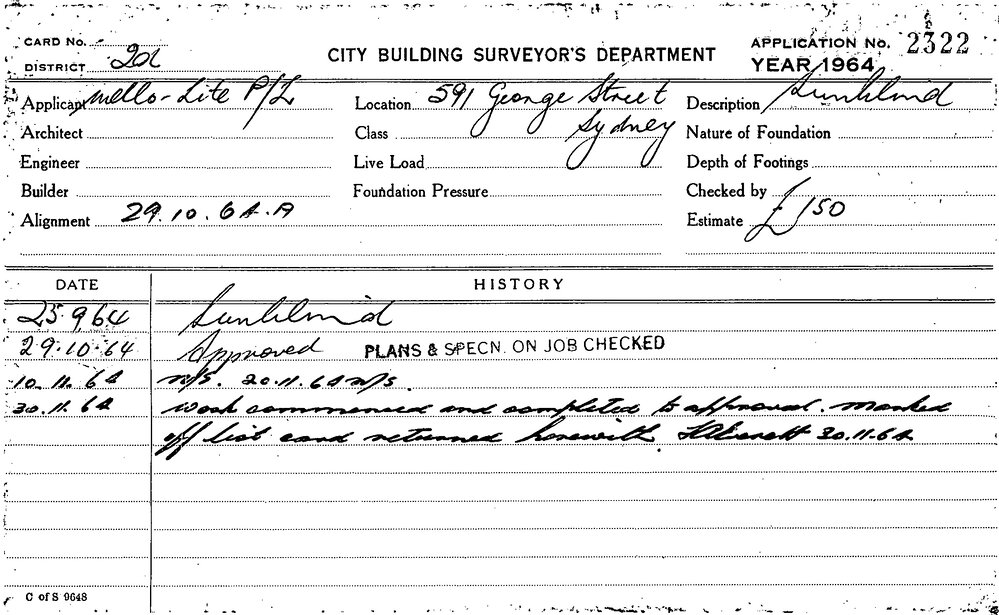 CARD No.
CITY BUILDING SURVEYOR'S DEPARTMENT
APPLICATION No. 2322
DISTRICT 2d
YEAR 1964
Applicant Mello-Lite P/L
Location 591 George Street
Sydney
Description Sunblind
Architect
Class
Nature of Foundation
Engineer
Live Load
Depth of Footings
Builder
Foundation Pressure
Checked by
Alignment 29.10.64.A
Estimate £150
DATE HISTORY
25.9.64 Sunblind
29.10.64 Approved PLANS & SPECN. ON JOB CHECKED
10.11.64 n/s. 20.11.64 n/s.
30.11.64 Work commenced and completed to approval. Marked
off list card returned herewith. 30.11.64
C of S 9648